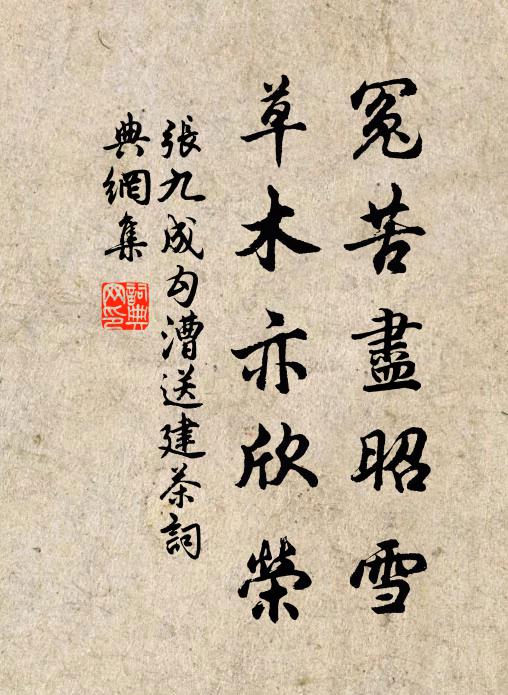 冤苦盡昭雪
草木亦欣榮
張九成勾漕送建茶詞
典網集
詞典網印